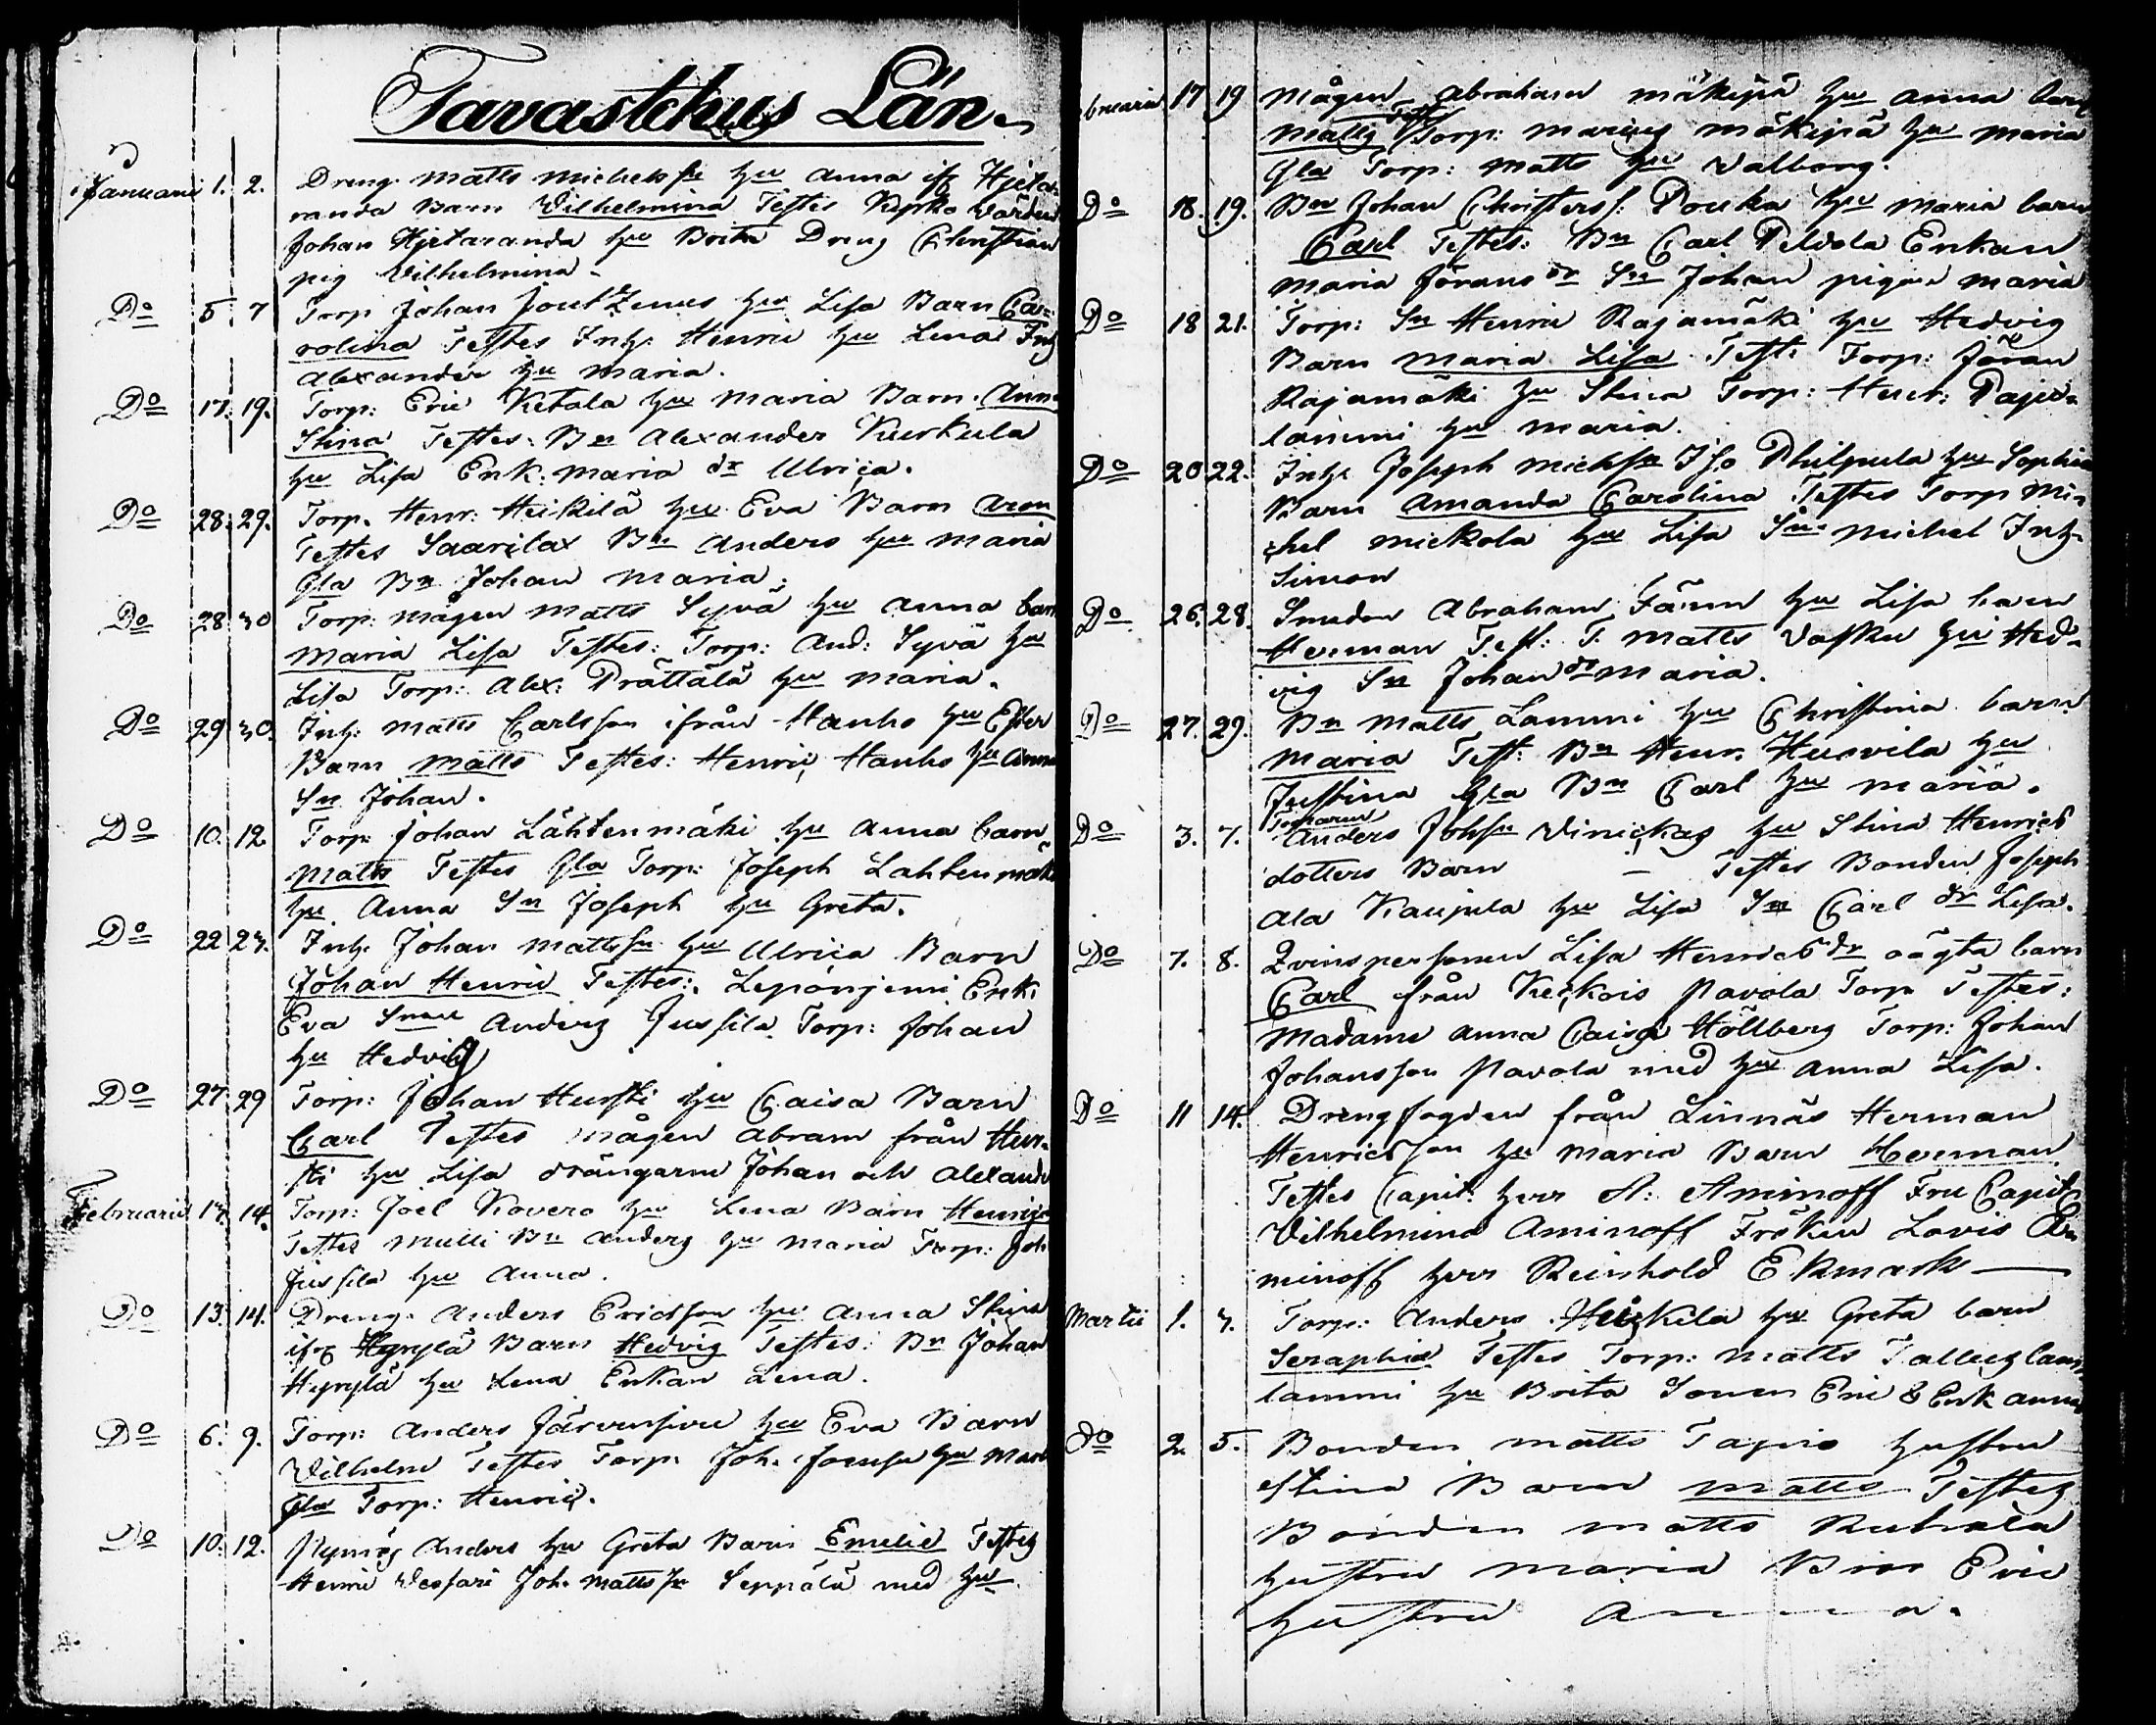 Tavastehus Län.
Januarii 1. 2. Dreng Matts Michelsso hu Anna ifr Hjeta-
randa Barn Wilhelmina Testes Kyrko Värden
Johan Hjetaranda hu Brita Dreng Christian
pig Wilhelmina.
Do 5. 7 Torp Johan hu Lisa Barn Ca-
rolina Testes Inh. Henric hu Lena Inh
Alexander hu Maria.
Do 17. 19. Torp: Eric Ketola hu Maria Barn. Anna
Stina Testes. Bn Alexander Kurkula
hu Lisa Enk. Maria dr Ulrica.
Do 28. 29. Torp. Henr: Heikilä hu Eva Barn Aron
Testes Saarilax Bn Anders hu Maria
Gla Bn Johan Maria.
Do 28 30 Torp: mågen Matts Syvä hu Anna barn
Maria Lisa Testes: Torp: And: Syvä hu
Lisa Torp: Alex: Prättälä hu Maria.
Do 29 30. Inh: Matts Carlsson ifrån Hanho hu Ester
Barn Matts Testes: Henric Hanho hu Anna
Sn Johan.
Do 10. 12 Torp Johan Lähtenmäki hu Anna barn
Matts Testes Gla Torp: Joseph Lahtenmäki
hu Anna Sn Joseph hu Greta.
Do 22 23. Inh. Johan Mattssn hu Ulrica Barn
Johan Henric Testes: Leponjemi Enk.
Eva Anders Jussila Torp: Johan
hu Hedvig
Do 27 29 Torp: Johan Hursti hu Caisa Barn
Carl Testes mågen Abram från Hur-
sti hu Lisa drängarne Johan och Alexander
Februarii 13. 14. Torp: Joel Kovero hu Lena Barn Henric
Testes Mulli Bn Anders hu Maria Torp: Joh
Jussila hu Anna.
Do 13. 14. Dreng. Anders Ericsson hu Anna Stina
ifr Hyrylä Barn Hedvig Testes: Bn Johan
Hyrylä hu Lena Enkan Lena.
Do 6. 9. Torp: Anders Järvensivu hu Eva Barn
Wilhelm Testes Torp: Joh. hu Mari
Gla Torp: Henric.
Do 10. 12. Anders hu Greta Barn Emelie Testes
Henric Vessari Joh. Mattssn Seppälä med hu
bruarii 17 19 Mågen Abraham Mäkipä hu Anna barn
Matts Test Torp: Marcus Mäkipä hu Maria
Gla Torp: Matts hu Valborg.
Do 18. 19. Bn Johan Christerss: Pouka hu Maria barn
Carl Testes: Bn Carl Peldola Enkan
Maria Jörans dr Sn Johan pigan Maria
Do 18 21. Torp: Sn Henric Rajamäki hu Hedvig
Barn Maria Lisa Test: Torp: Jöran
Rajamäki hu Stina Torp: Henr: Pajo-
lammi hu Maria.
Do 20 22. Inh. Joseph Michssn Iso Philpula hu Sophia
Barn Amanda Carolina Testes Torp Mi-
chel Mickola hu Lisa Sn Michel Inh.
Simon
Do 26. 28. Smeden Abraham Färm hu Lisa barn
Herman Test: T. Matts Vasku hu Hed-
vig Sn Johan dr Maria.
Do 27. 29. Bn Matts Lammi hu Christina barn
Maria Test: Bn Henr. Husvila hu
Justina Gla Bn Carl hu Maria.
Do 3. 7. Torparen Anders Johssn Vinickas hu Stina Henrics
dotters Barn — Testes Bonden Joseph
Ala Kaupila hu Lisa Sn Carl dr Lisa.
Do 7. 8. Qvinspersonen Lisa Henrics dr oägta barn
Carl från Keckois Pavola Torp Testes:
Madame Anna Caisa Höllberg Torp: Johan
Johansson Pavola med hu Anna Lisa.
Do 11 14. Drengfogden från Linnäs Herman
Henricsson hu Maria Barn Herman
Testes Capit: herr A: Aminoff Fru Capit
Wilhelmina Aminoff Fröken Lovis A-
minoff herr Reinhold Ekmark —
Martii 1. 3. Torp: Anders Heikkilä hu Greta barn
Seraphia Testes Torp: Matts
lammi hu Brita Sonen Eric & Enk Anna
do 2. 5. Bonden Matts Tapio hustru
Stina Barn Matts Testes
Bonden Matts Ruhala
hustru Maria Bror Eric
hustru Anna.